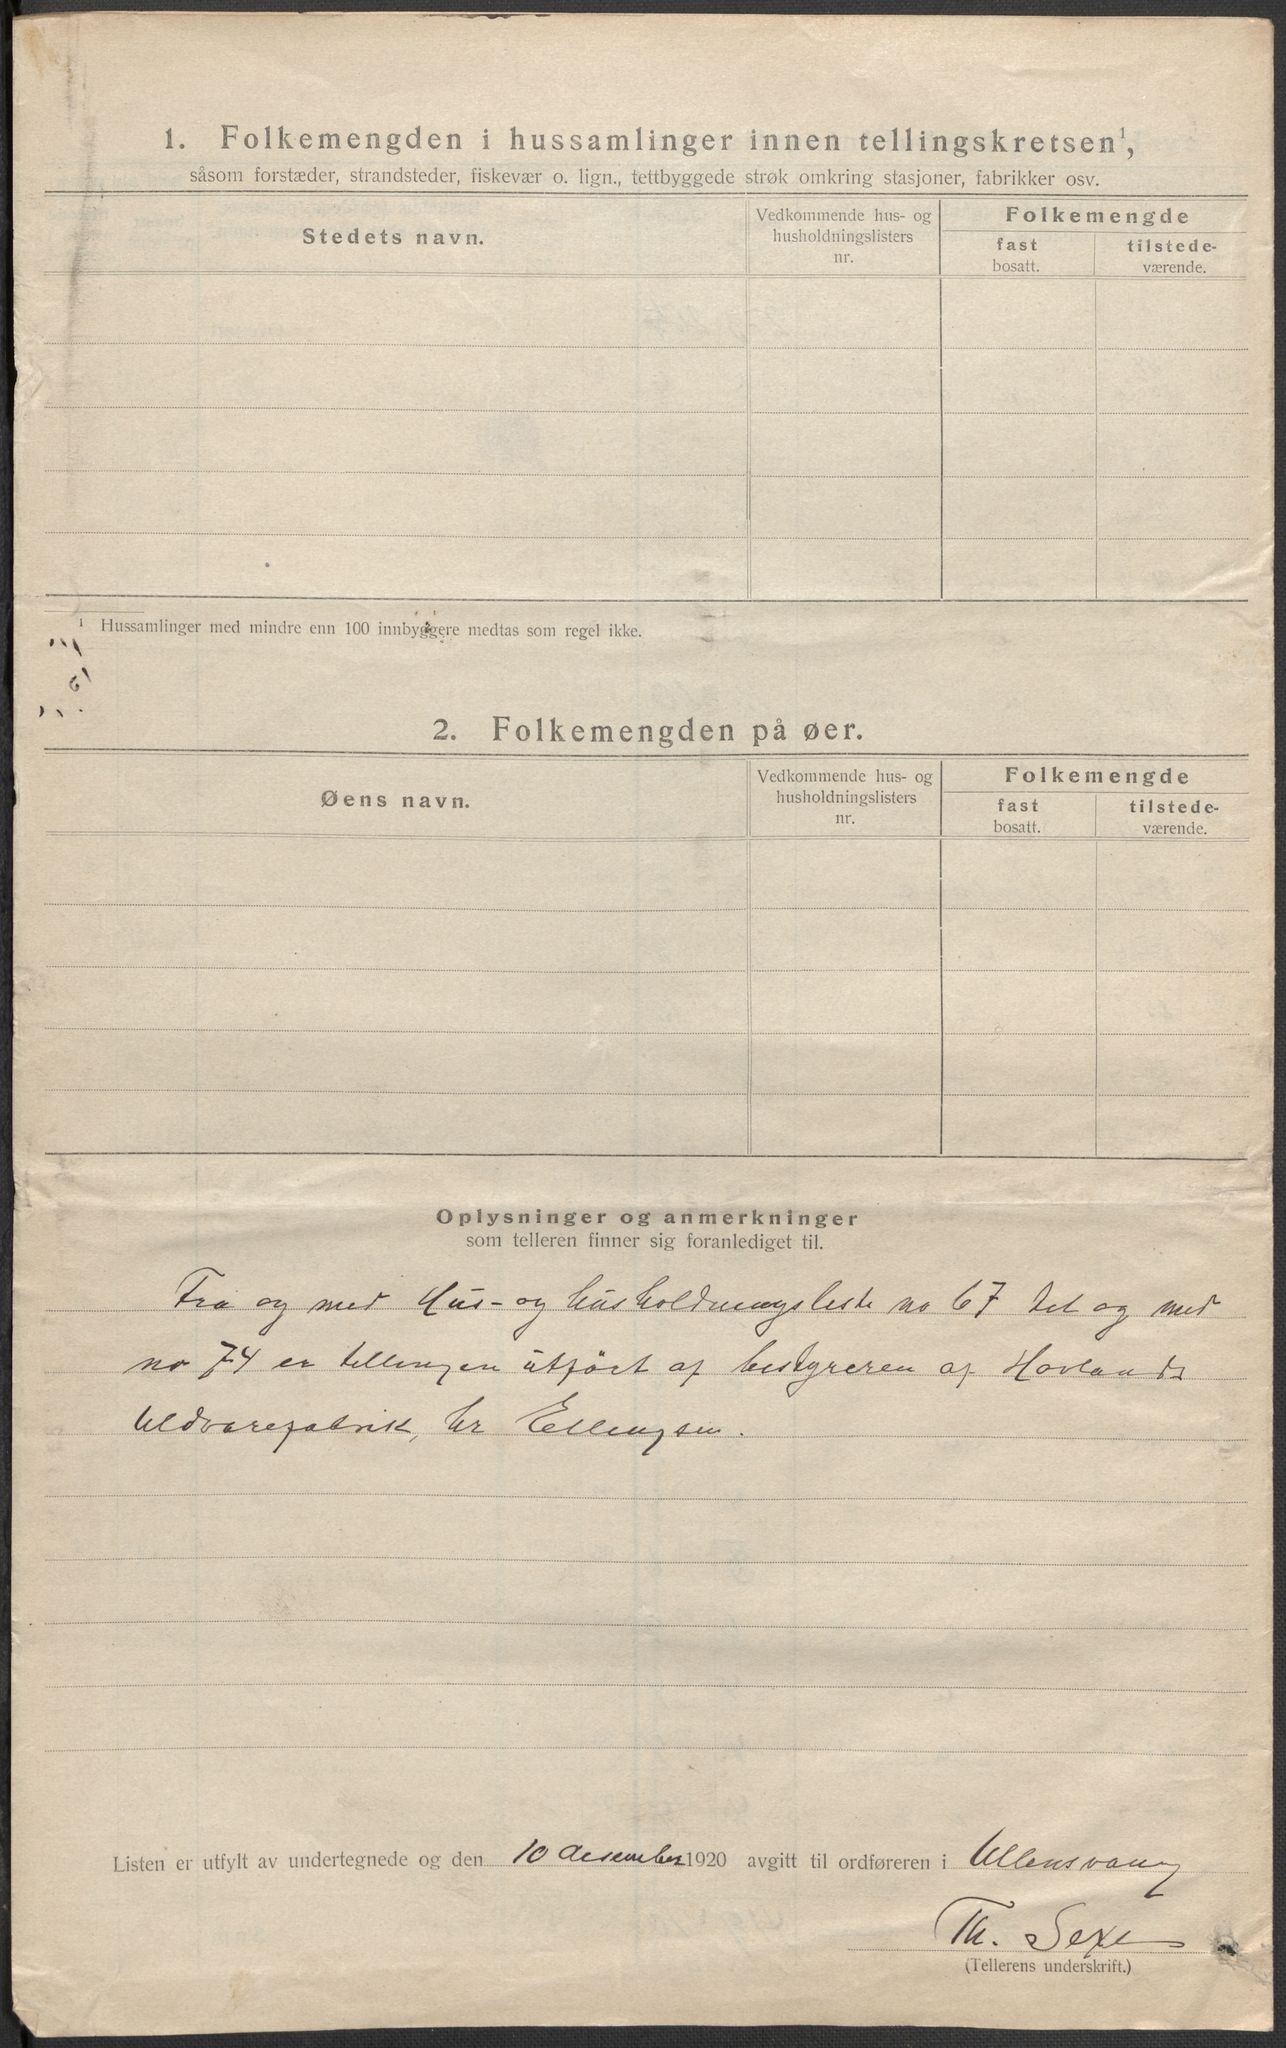 1. Folkemengden i hussamlinger innen tellingskretsen¹,
såsom forstæder, strandsteder, fiskevær o. lign., tettbyggede strøk omkring stasjoner, fabrikker osv.
Stedets navn.
Vedkommende hus- og
husholdningslisters
nr.
Folkemengde
fast
bosatt.
tilstede-
værende.
¹ Hussamlinger med mindre enn 100 innbyggere medtas som regel ikke.
2. Folkemengden på øer.
Øens navn.
Vedkommende hus- og
husholdningslisters
nr.
Folkemengde
fast
bosatt.
tilstede-
værende.
Oplysninger og anmerkninger
som telleren finner sig foranlediget til.
Fra og med Hus- og husholdningsliste no 67 til og med
no 74 er tellingen utført af bestyreren af Hovlands
Uldvarefabrik, hr Ellingsen.
Listen er utfylt av undertegnede og den 10 desember 1920 avgitt til ordføreren i Ullensvang
Th. Sexe
(Tellerens underskrift.)